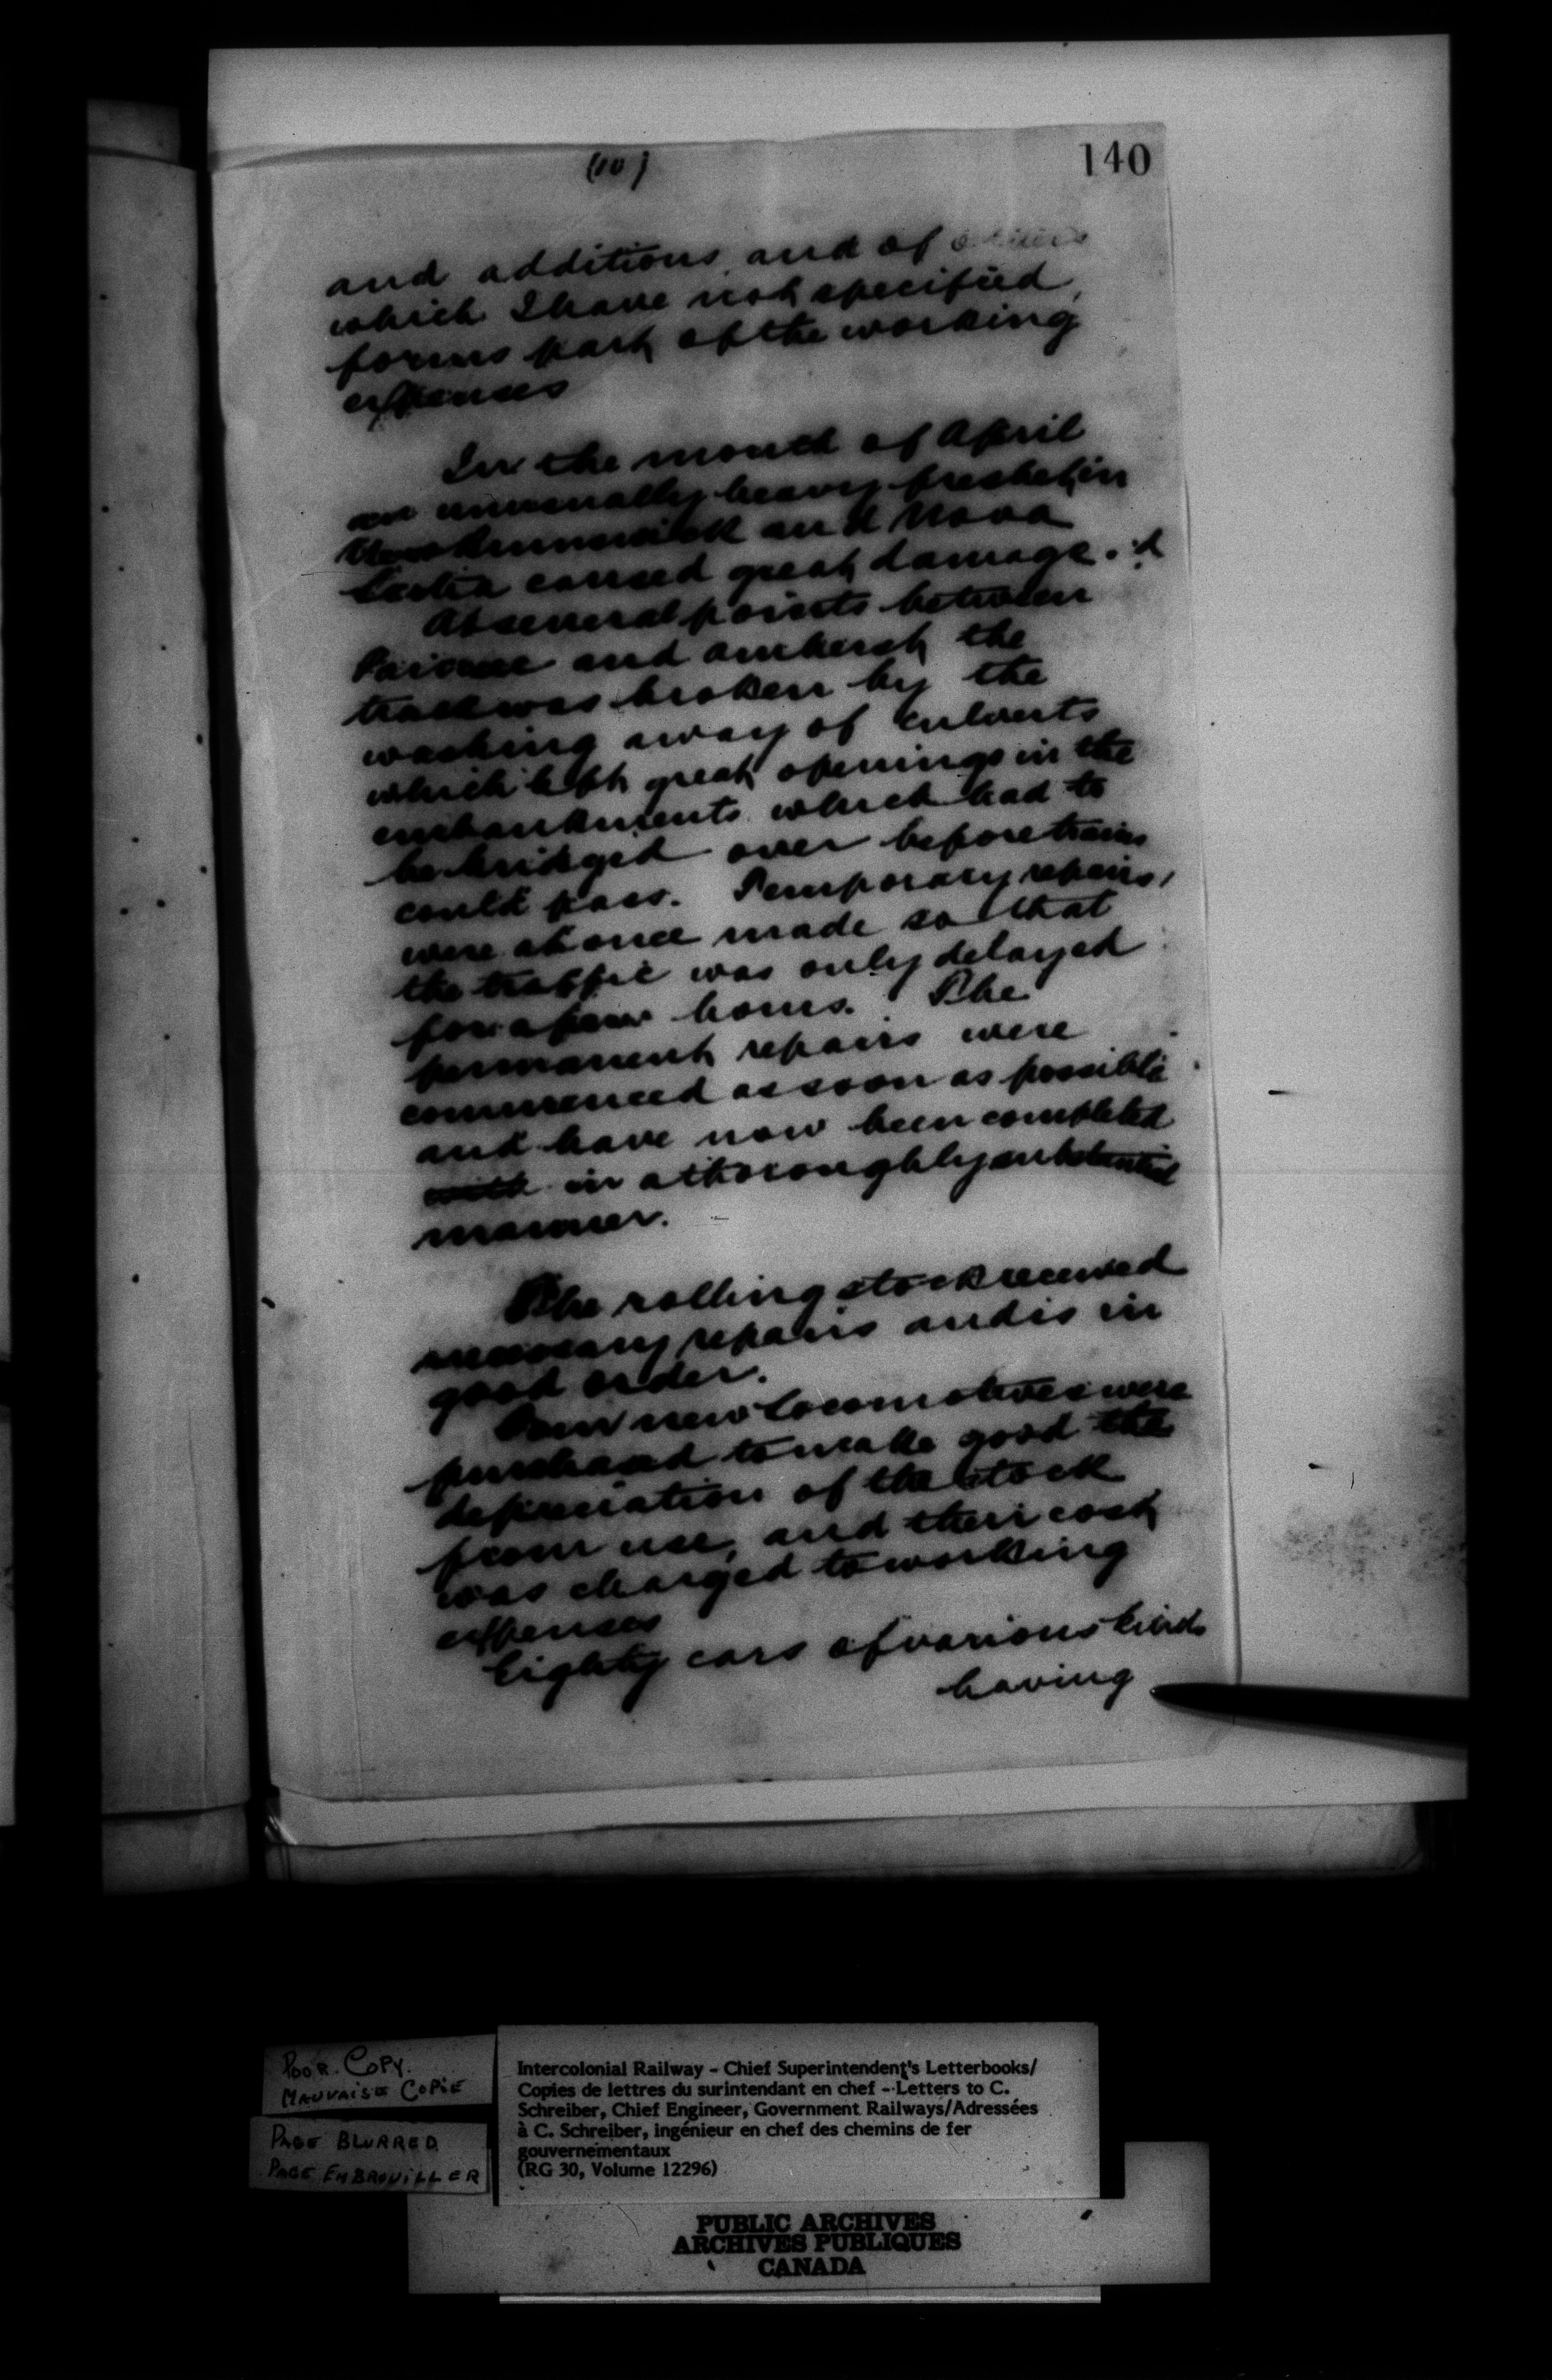 (10)
140
and additions, and of others
which I have not specified,
forms part of the working
expenses
In the month of April
an unusually heavy freshet in
New Brunswick and Nova
Scotia caused great damage.
At several points between
and Amherst the
track was broken by the
washing away of culverts
which left great openings in the
embankments which had to
be bridged over before trains
could pass. Temporary repairs,
were at once made so that
the traffic was only delayed
for a few hours. The
permanent repairs were
commenced as soon as possible
and have now been completed
with in a thoroughly substantial
manner.
The rolling stock received
necessary repairs and is in
good order.
new locomotives were
purchased to make good the
depreciation of the stock
from use, and their cost
was charged to working
expenses
Eighty cars of various kinds
having
POOR COPY.
MAUVAISE COPIE
PAGE BLURRED
PAGE EMBROUILLER
Intercolonial Railway - Chief Superintendent's Letterbooks/
Copies de lettres du surintendant en chef - Letters to C.
Schreiber, Chief Engineer, Government Railways/Adressées
à C. Schreiber, ingénieur en chef des chemins de fer
gouvernementaux
(RG 30, Volume 12296)
PUBLIC ARCHIVES
ARCHIVES PUBLIQUES
CANADA